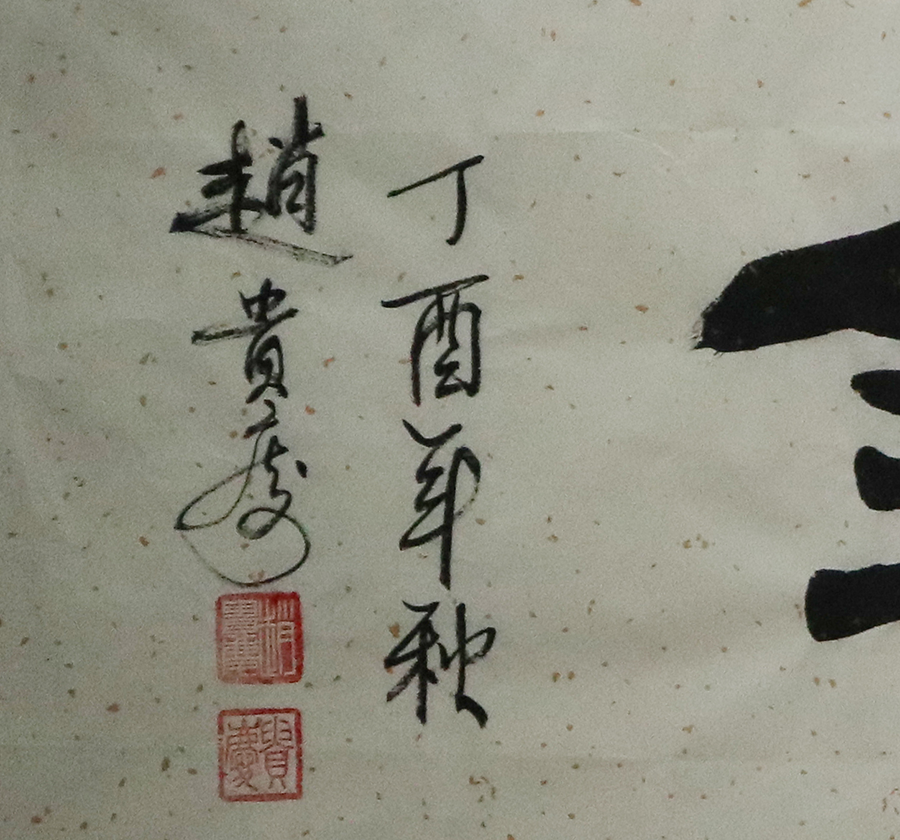 丁酉年秋
趙貴慶
貴慶